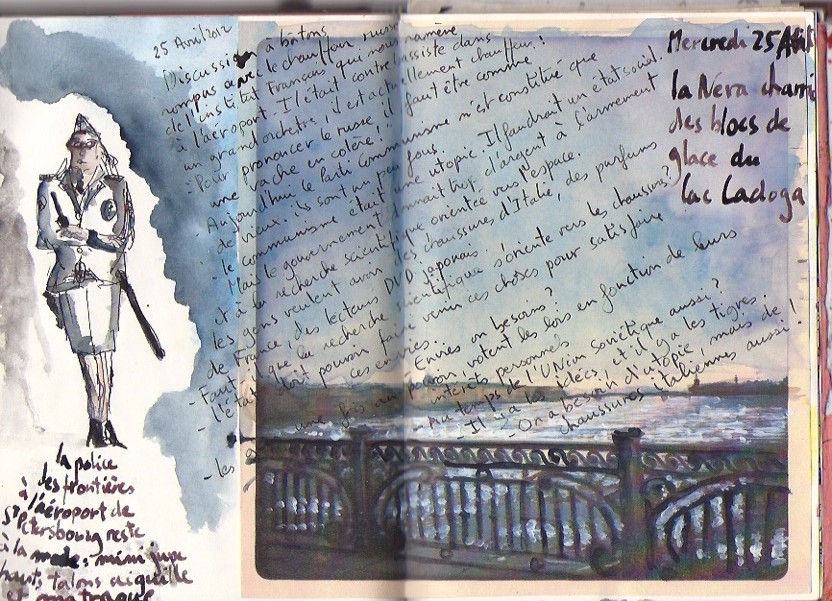 25 Avril 2012
Discussion à bâtons
rompus avec le chauffeur russe
de l'institut français qui nous ramène
à l'aéroport. Il était contrebassiste dans
un grand orchestre, il est actuellement chauffeur!
- Pour prononcer le russe, il faut être comme
une vache en colère!
Aujourd'hui le parti communisme n'est constitué que
de vieux. ils sont un peu fous.
- le communisme était une utopie. Il faudrait un état social.
Mais le gouvernement donnait trop d'argent à l'armement
et à la recherche scientifique orientée vers l'espace.
les gens veulent avoir des chaussures d'Italie, des parfums
de France, des lecteurs DVD japonais
- Faut-il que la recherche scientifique s'oriente vers les chaussures?
- l'état doit pouvoir faire venir ces choses pour satisfaire
ces envies.
Envies ou besoins?
- les une fois au pouvoir, votent les lois en fonction de leurs
intérêts personnels
- Au temps de l'Union soviétique aussi?
- Il y a les idées, et il y a les tigres.
- On a besoin d'utopie, mais de
chaussures italiennes aussi!
Mercredi 25 Avril
la Néva charri
des blocs de
glace du
lac Ladoga
la police
des frontières
à l'aéroport de
St Petersbourg reste
à la mode: mini jupe
hauts talons aiguille
et matraque